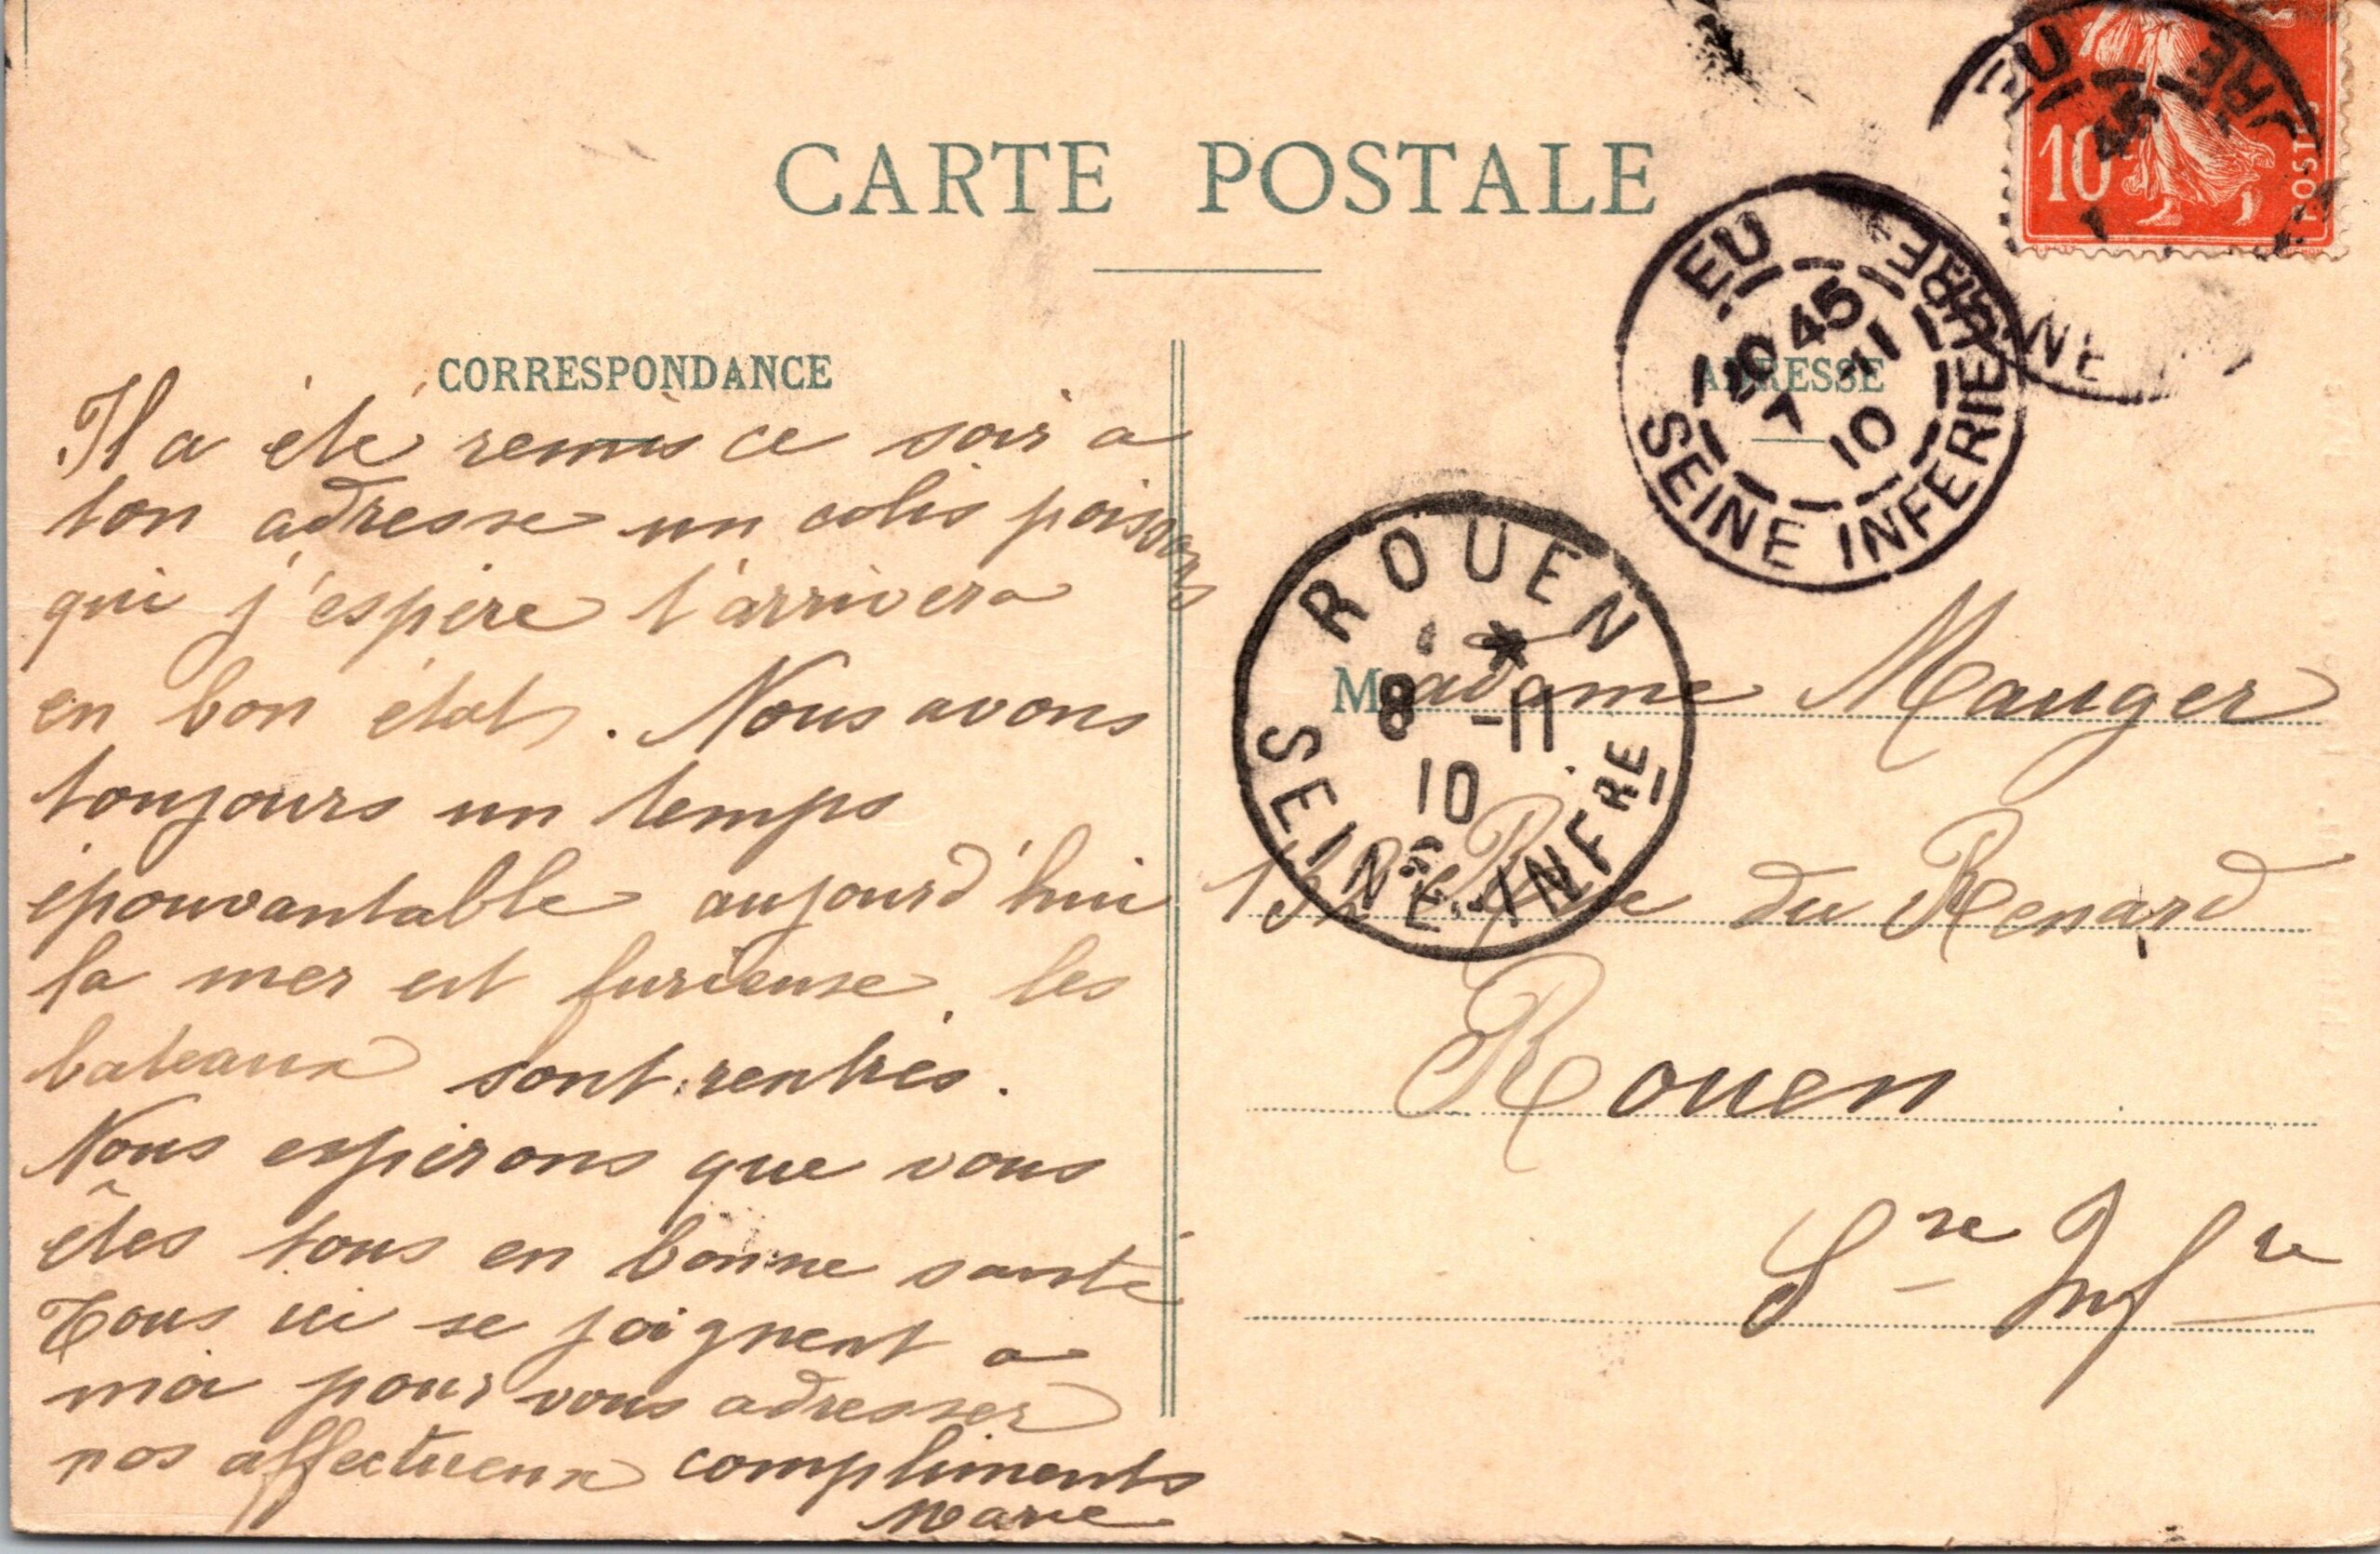 CARTE POSTALE
CORRESPONDANCE
Il a été remis ce soir a
ton adresse un colis poissons
qui j'espère t'arrivera
en bon état. Nous avons
toujours un temps
épouvantable aujourd'hui
la mer est furieuse, les
bateaux sont rentrés.
Nous espérons que vous
êtes tous en bonne santé
Tous ici se joignent a
moi pour vous adresser
nos affectueux compliments
Marie
10
POSTES
EU
45
RE
NE
EU
10 45
7 -11
10
SEINE INFERIEURE
ADRESSE
ROUEN
8 -11
10
SEINE INFRE
Madame Mauger
Rue du Renard
Rouen
Sre Infre